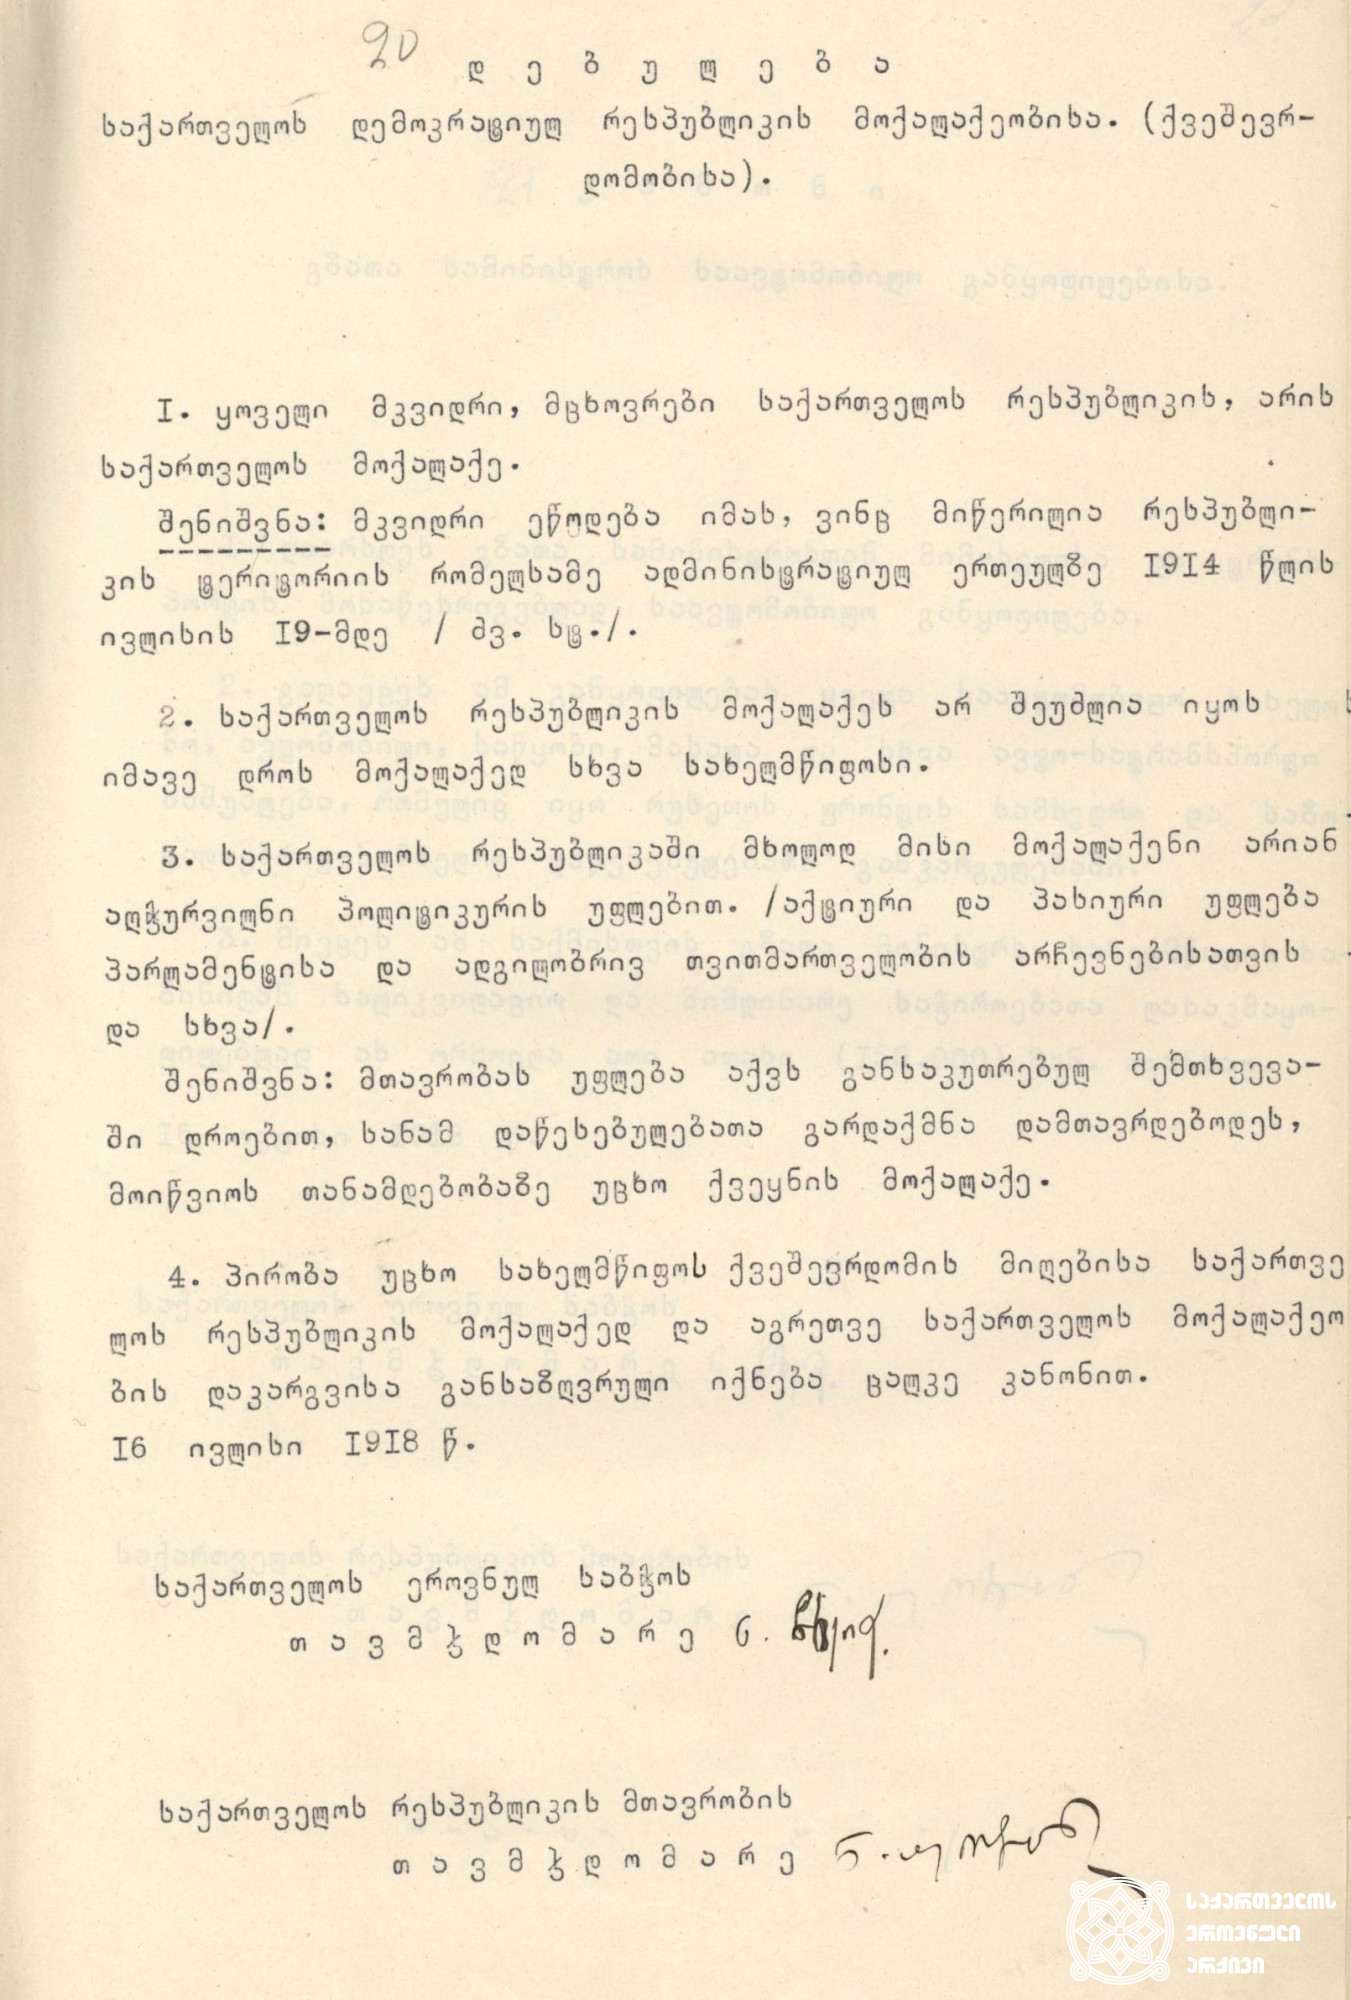 20
დ ე ბ უ ლ ე ბ ა
საქართველოს დემოკრატიულ რესპუბლიკის მოქალაქეობისა. (ქვეშევრ-
დომობისა).
I. ყოველი მკვიდრი, მცხოვრები საქართველოს რესპუბლიკის, არის
საქართველოს მოქალაქე.
შენიშვნა: მკვიდრი ეწოდება იმას, ვინც მიწერილია რესპუბლი-
კის ტერიტორიის რომელსამე ადმინისტრატიულ ერთეულზე I9I4 წლის
ივლისის I9-მდე / ძვ. სტ./.
2. საქართველოს რესპუბლიკის მოქალაქეს არ შეუძლია იყოს
იმავე დროს მოქალაქედ სხვა სახელმწიფოსი.
3. საქართველოს რესპუბლიკაში მხოლოდ მისი მოქალაქენი არიან
აღჭურვილნი პოლიტიკურის უფლებით. /აქტიური და პასიური უფლება
პარლამენტისა და ადგილობრივ თვითმართველობის არჩევნებისათვის
და სხვა/.
შენიშვნა: მთავრობას უფლება აქვს განსაკუთრებულ შემთხვევა-
ში დროებით, სანამ დაწესებულებათა გარდაქმნა დამთავრდებოდეს,
მოიწვიოს თანამდებობაზე უცხო ქვეყნის მოქალაქე.
4. პირობა უცხო სახელმწიფოს ქვეშევრდომის მიღებისა საქართვე
ლოს რესპუბლიკის მოქალაქედ და აგრეთვე საქართველოს მოქალაქეო
ბის დაკარგვისა განსაზღვრული იქნება ცალკე კანონით.
I6 ივლისი I9I8 წ.
საქართველოს ეროვნულ საბჭოს
თ ა ვ მ ჯ დ ო მ ა რ ე ნ.
საქართველოს რესპუბლიკის მთავრობის
თ ა ვ მ ჯ დ ო მ ა რ ე ნ.
საქართველოს
ეროვნული
არქივი